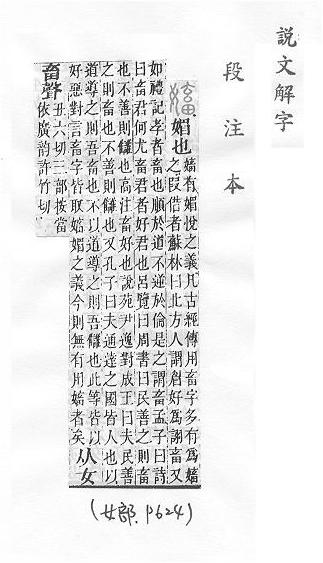 說文解字
段注本
㜅 媚也 㜅有媚悅之義凡古經傳用畜字多有爲㜅
之叚借者蘇林曰北方人謂媚好爲詡畜又
如禮記孝者畜也順於道不逆於倫是之謂畜孟子曰詩
曰畜君何尤畜君者好君也呂覽曰周書曰民善之則畜
也不善則讎也高注畜好也說苑尹逸對成王曰夫民善
之則畜也不善則讎也又孔子曰夫通達之國皆人也以
道導之則吾畜也不以道導之則吾讎也此等皆以
好惡對言畜字皆取㜅媚之義今則無有用㜅者矣 从女
畜聲 丑六切三部按當
依廣韵許竹切
(女部．P624)